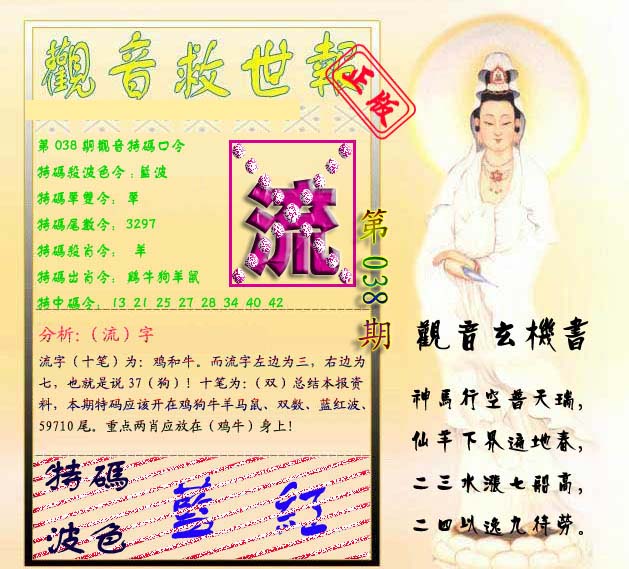 觀音救世報
正版
第 038 期觀音特碼口令
特碼殺波色令：藍波
特碼單雙令： 單
特碼尾數令： 3297
特碼殺肖令： 羊
特碼出肖令： 鷄牛狗羊鼠
特中碼令： 13 21 25 27 28 34 40 42
流
第 038 期
分析:（流）字
流字（十笔）为：鸡和牛。而流字左边为三，右边为
七，也就是说 37（狗）！十笔为：（双）总结本报资
料，本期特码应该开在鸡狗牛羊马鼠、双数、蓝红波、
59710 尾。重点两肖应放在（鸡牛）身上!
特碼
波色
藍 紅
觀音玄機書
神馬行空普天瑞，
仙羊下界遍地春，
二三水漲七船高，
二四以逸九待勞。